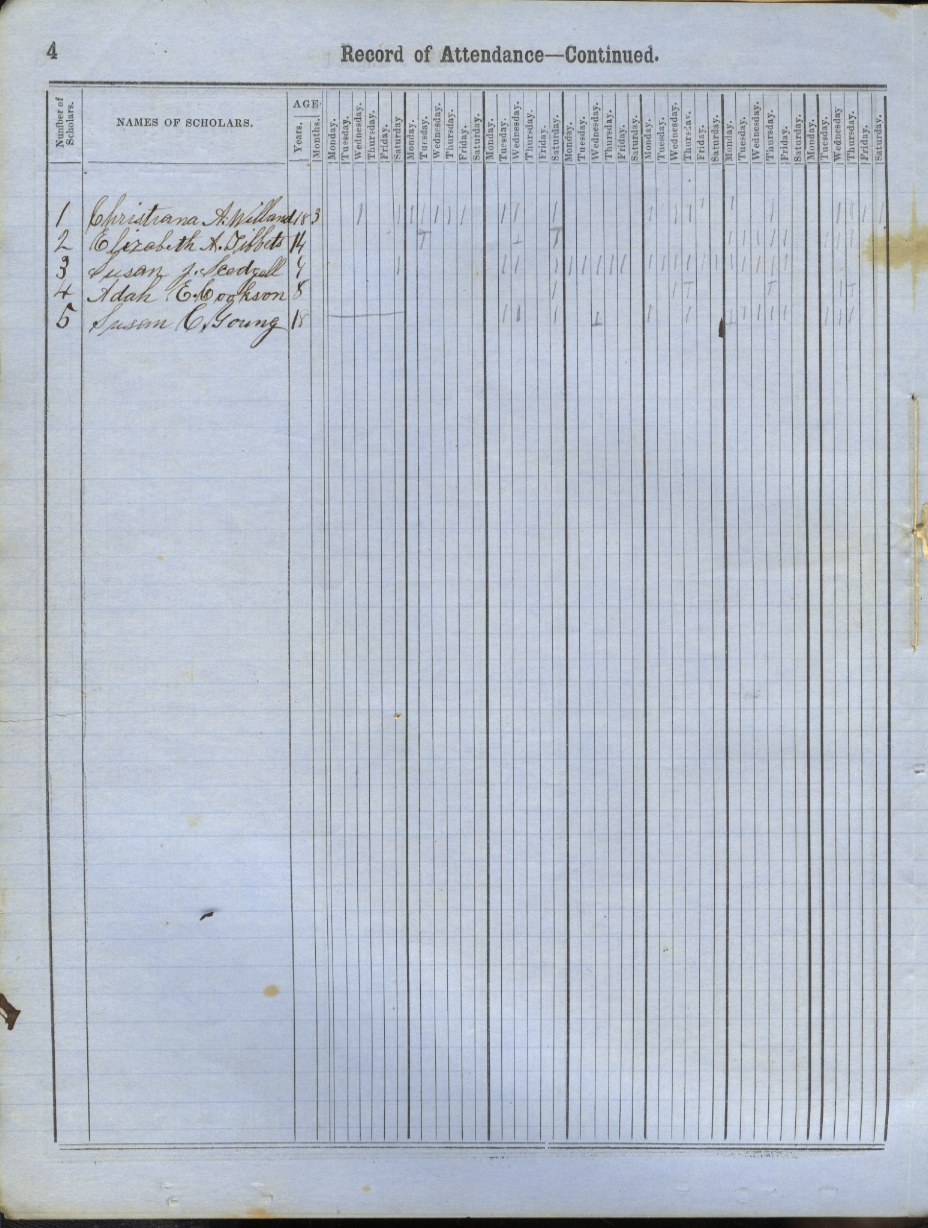 4
Record of Attendance—Continued.
Number of Scholars.
NAMES OF SCHOLARS.
AGE
Years.
Months.
Monday. Tuesday. Wednesday. Thursday. Friday. Saturday Monday. Tuesday. Wednesday. Thursday. Friday. Saturday. Monday. Tuesday. Wednesday. Thursday. Friday. Saturday. Monday. Tuesday. Wednesday. Thursday. Friday. Saturday. Monday. Tuesday. Wednesday. Thursday. Friday. Saturday. Monday. Tuesday. Wednesday. Thursday. Friday. Saturday. Monday. Tuesday. Wednesday Thursday. Friday. Saturday.
1 Christiana A. Willand 18 3
2 Elizabeth A. Tibbets 14
3 Susan J. 9
4 Adah E. Cookson 8
5 Susan C. Young 18